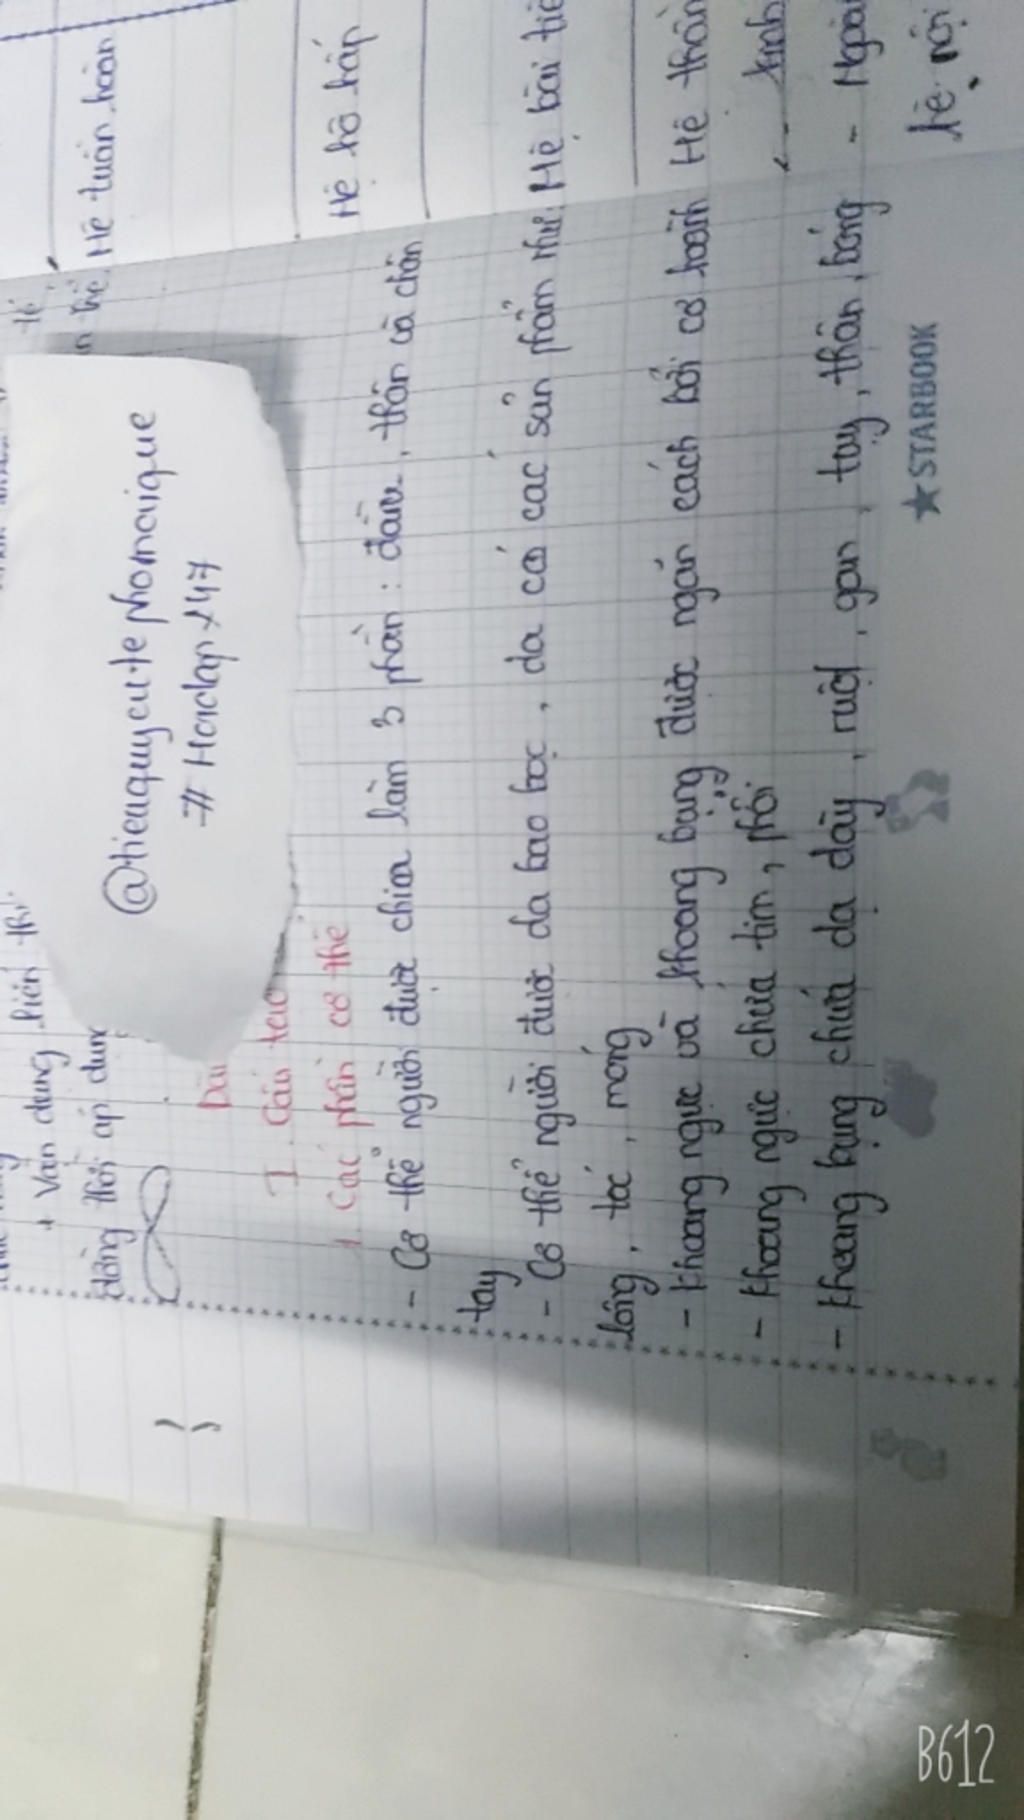 + Vận dụng kiến
đồng thời áp dụng
@tieuquycutephomaique
# Hoidap247
Bài
I. Cấu tạo
1. Các phần cơ thể
- Cơ thể người được chia làm 3 phần: đầu, thân và chân
tay
- Cơ thể người được da bao bọc, da có các sản phẩm như:
lông, tóc, móng
- Khoang ngực và khoang bụng được ngăn cách bởi cơ hoành
- Khoang ngực chứa tim, phổi
- Khoang bụng chứa dạ dày, ruột, gan, tụy, thận, bóng
★STARBOOK
Hệ tuần hoàn
Hệ hô hấp
Hệ bài tiế
Hệ thần
kinh
- Ngoài
hệ nội
B612